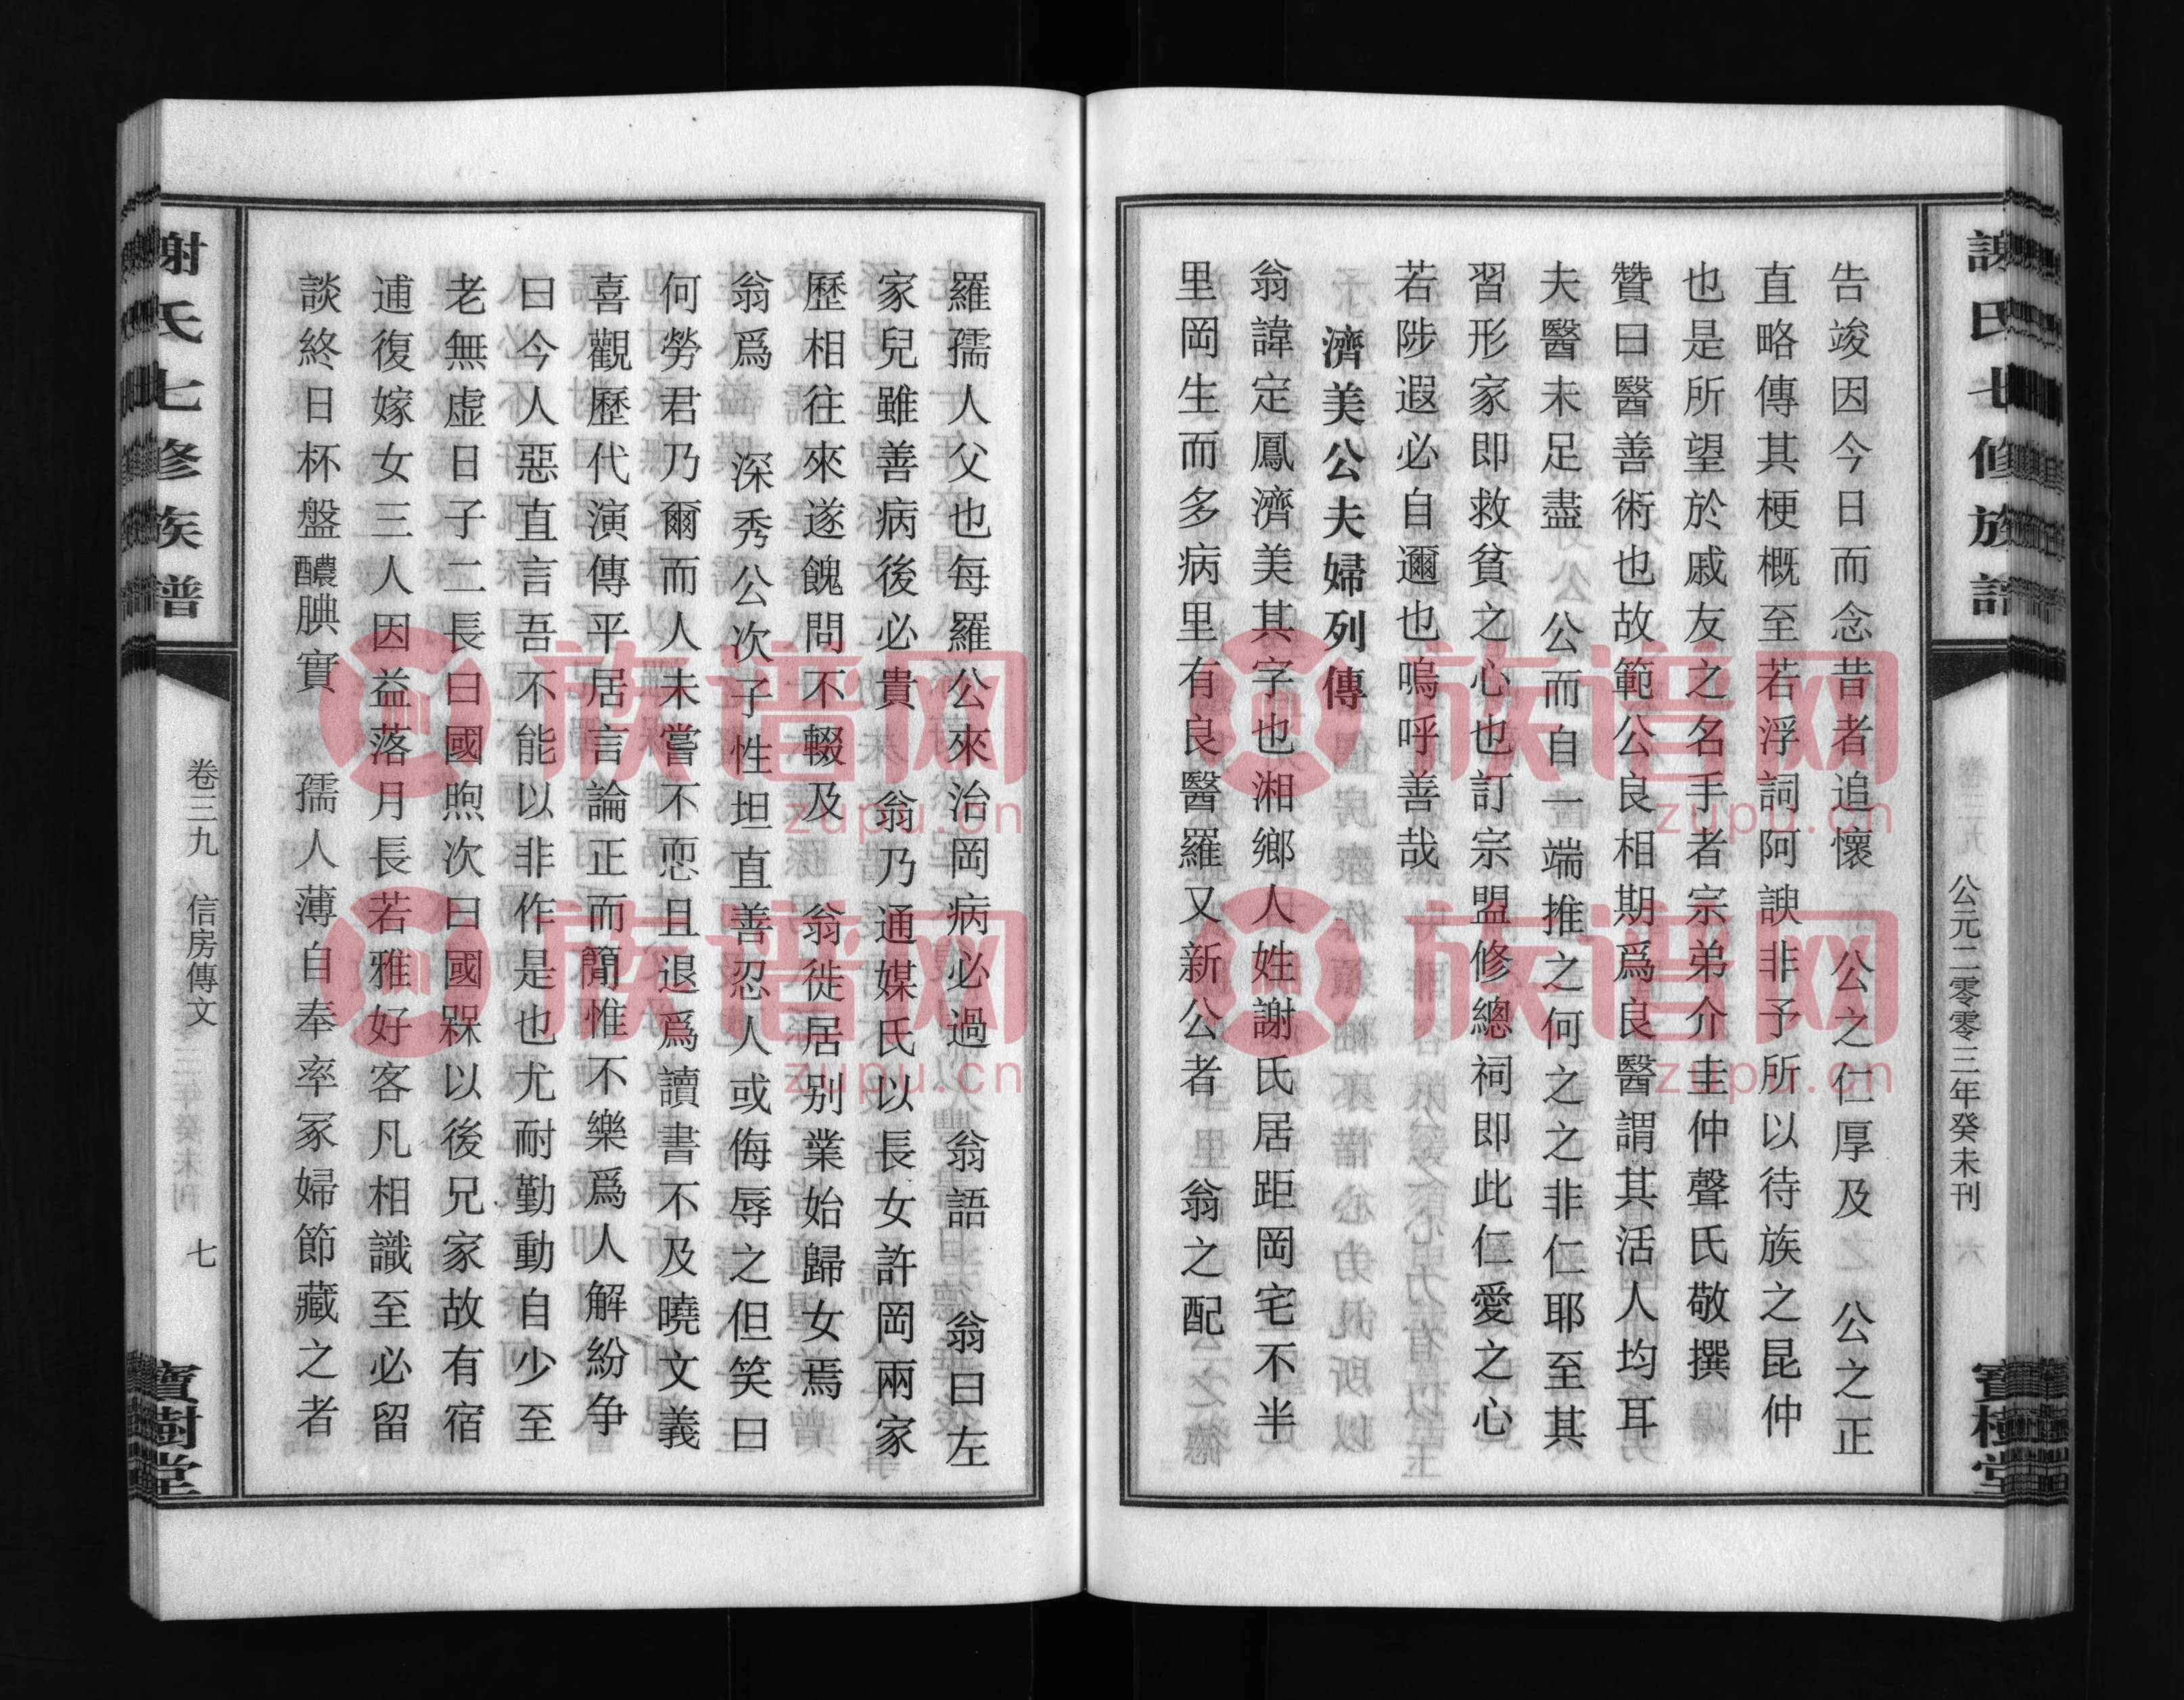 謝氏七修族譜
公元二零零三年癸未刊
寶樹堂
告竣因今日而念昔者追懷 公之仁厚及 公之正
直略傳其梗概至若浮詞阿諛非予所以待族之昆仲
也是所望於戚友之名手者宗弟介圭仲聲氏敬撰
贊曰醫善術也故範公良相期爲良醫謂其活人均耳
夫醫未足盡 公而自一端推之何之之非仁耶至其
習形家即救貧之心也訂宗盟修總祠即此仁愛之心
若陟遐必自邇也嗚呼善哉
濟美公夫婦列傳
翁諱定鳳濟美其字也湘鄉人姓謝氏居距岡宅不半
里岡生而多病里有良醫羅又新公者 翁之配
羅孺人父也每羅公來治岡病必過 翁語 翁曰左
家兒雖善病後必貴 翁乃通媒氏以長女許岡兩家
歷相往來遂餽問不輟及 翁徙居别業始歸女焉
翁爲 深秀公次子性坦直善忍人或侮辱之但笑曰
何勞君乃爾而人未嘗不恧且退爲讀書不及曉文義
喜觀歷代演傳平居言論正而簡惟不樂爲人解紛争
曰今人惡直言吾不能以非作是也尤耐勤動自少至
老無虚日子二長曰國煦次曰國槑以後兄家故有宿
逋復嫁女三人因益落月長若雅好客凡相識至必留
談終日杯盤醲腆實 孺人薄自奉率冢婦節藏之者
謝氏七修族譜
卷三九 信房傳文
七
寶樹堂
族谱网
zupu.cn
族谱网
zupu.cn
族谱网
zupu.cn
族谱网
zupu.cn